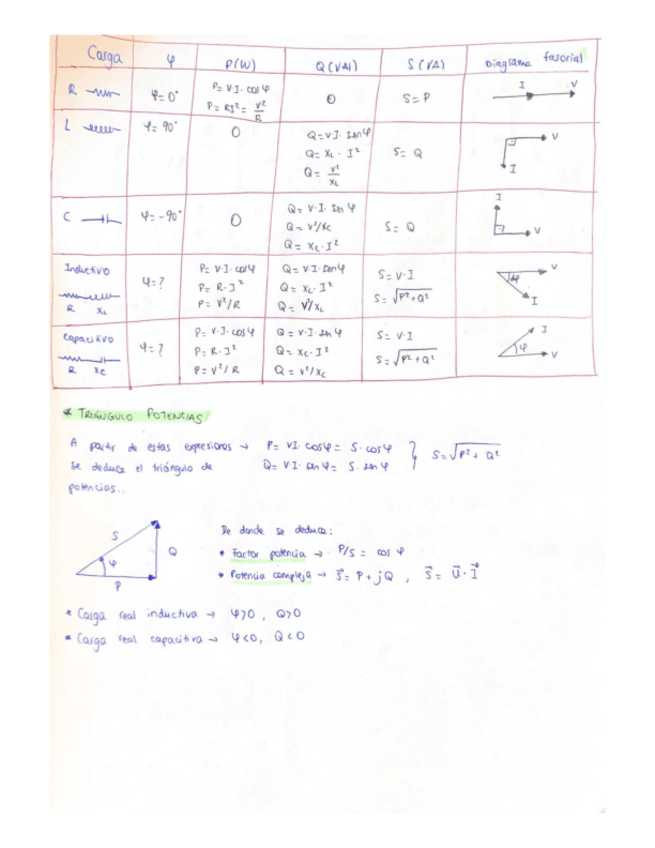 Carga φ P(W) Q(VAr) S(VA) Diagrama fasorial
R φ=0° P= V·I·cosφ P= RI²= V²/R 0 S=P I V
L φ= 90° 0 Q=VI·senφ Q= XL·I² Q= V²/XL S= Q V I
C φ=-90° 0 Q= V·I·senφ Q= V²/XC Q= XC·I² S= Q I V
Inductivo R XL φ=? P= V·I·cosφ P= R·I² P= V²/R Q=V·I·senφ Q= XL·I² Q= V²/XL S=V·I S=√P²+Q² φ V I
Capacitivo R XC φ=? P= V·I·cosφ P=R·I² P=V²/R Q=V·I·senφ Q= XC·I² Q= V²/XC S= V·I S=√P²+Q² φ I V
* TRIÁNGULO POTENCIAS
A partir de estas expresiones → P= VI·cosφ= S·cosφ } S=√P²+Q²
se deduce el triángulo de Q= V·I·senφ= S·senφ
potencias..
S φ Q P
De donde se deduce:
* Factor potencia → P/S = cosφ
* Potencia compleja → S⃗= P+jQ , S⃗= U⃗·I⃗*
* Carga real inductiva → φ>0, Q>0
* Carga real capacitiva → φ<0, Q<0